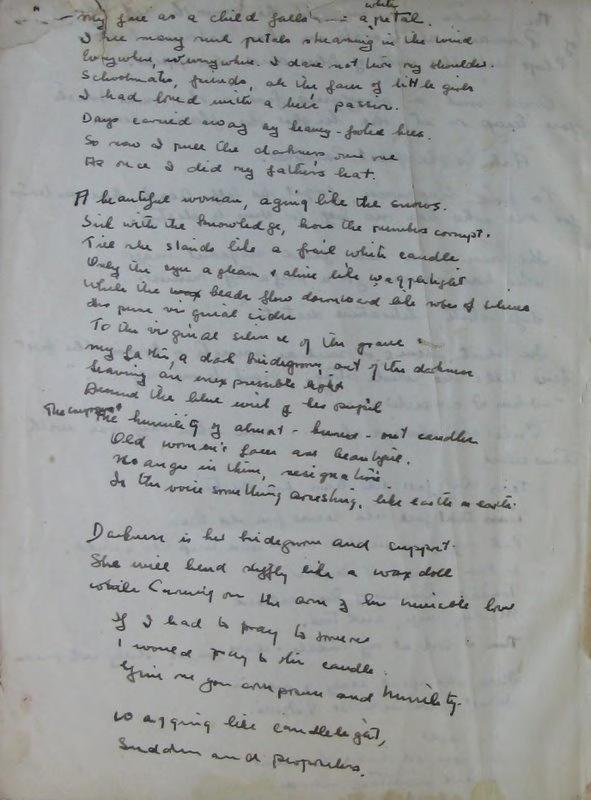 white
My face as a child falls a petal.
I see many such petals streaming in the wind
Everywhere, everywhere. I dare not turn my shoulder.
Schoolmates, friends, oh the faces of little girls
I had loved with a bee's passion.
Days carried away by heavy-footed bees.
So now I pull the darkness over me
As once I did my father's hat.
A beautiful woman, aging like the snows.
Sick with the knowledge, how the number corrupt.
Till she stands like a frail white candle
Only the eyes agleam & alive like wagging light
While the wax beads flow downward like robes of
pure virginal
To the virginal silence of the grave
My father, a dark bridegroom out of the darkness
Leaving an inexpressible light
Behind the blue wind of her pupil
The humility of almost-burnt-out candles
Old women's faces are beautiful.
No anger in them, resignation.
In the voice something arresting, like earth on earth.
Darkness is her bridegroom and support.
She will bend stiffly like a wax doll
While leaning on the arm of her invisible love
If I had to pray to someone
I would pray to this candle.
Give me your composure and humility.
wagging like candlelight,
Sudden and